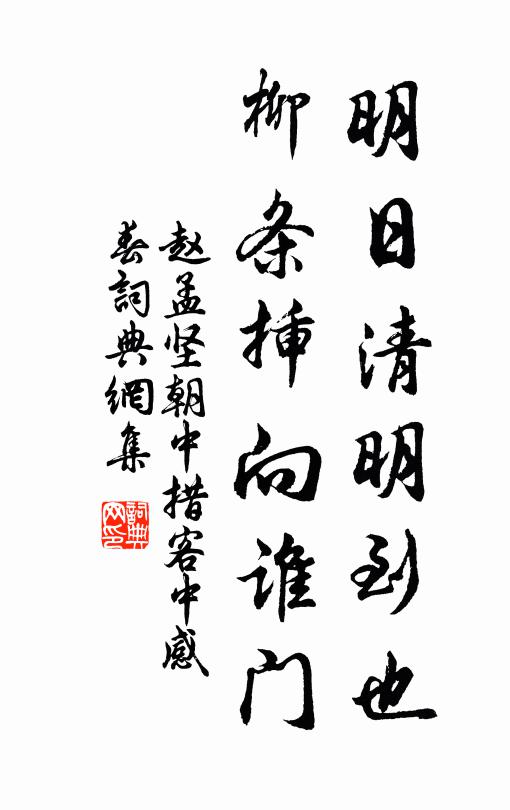 明日清明到也
柳条挿向谁门
赵孟坚朝中措客中感
春詞典網集
詞典
网印